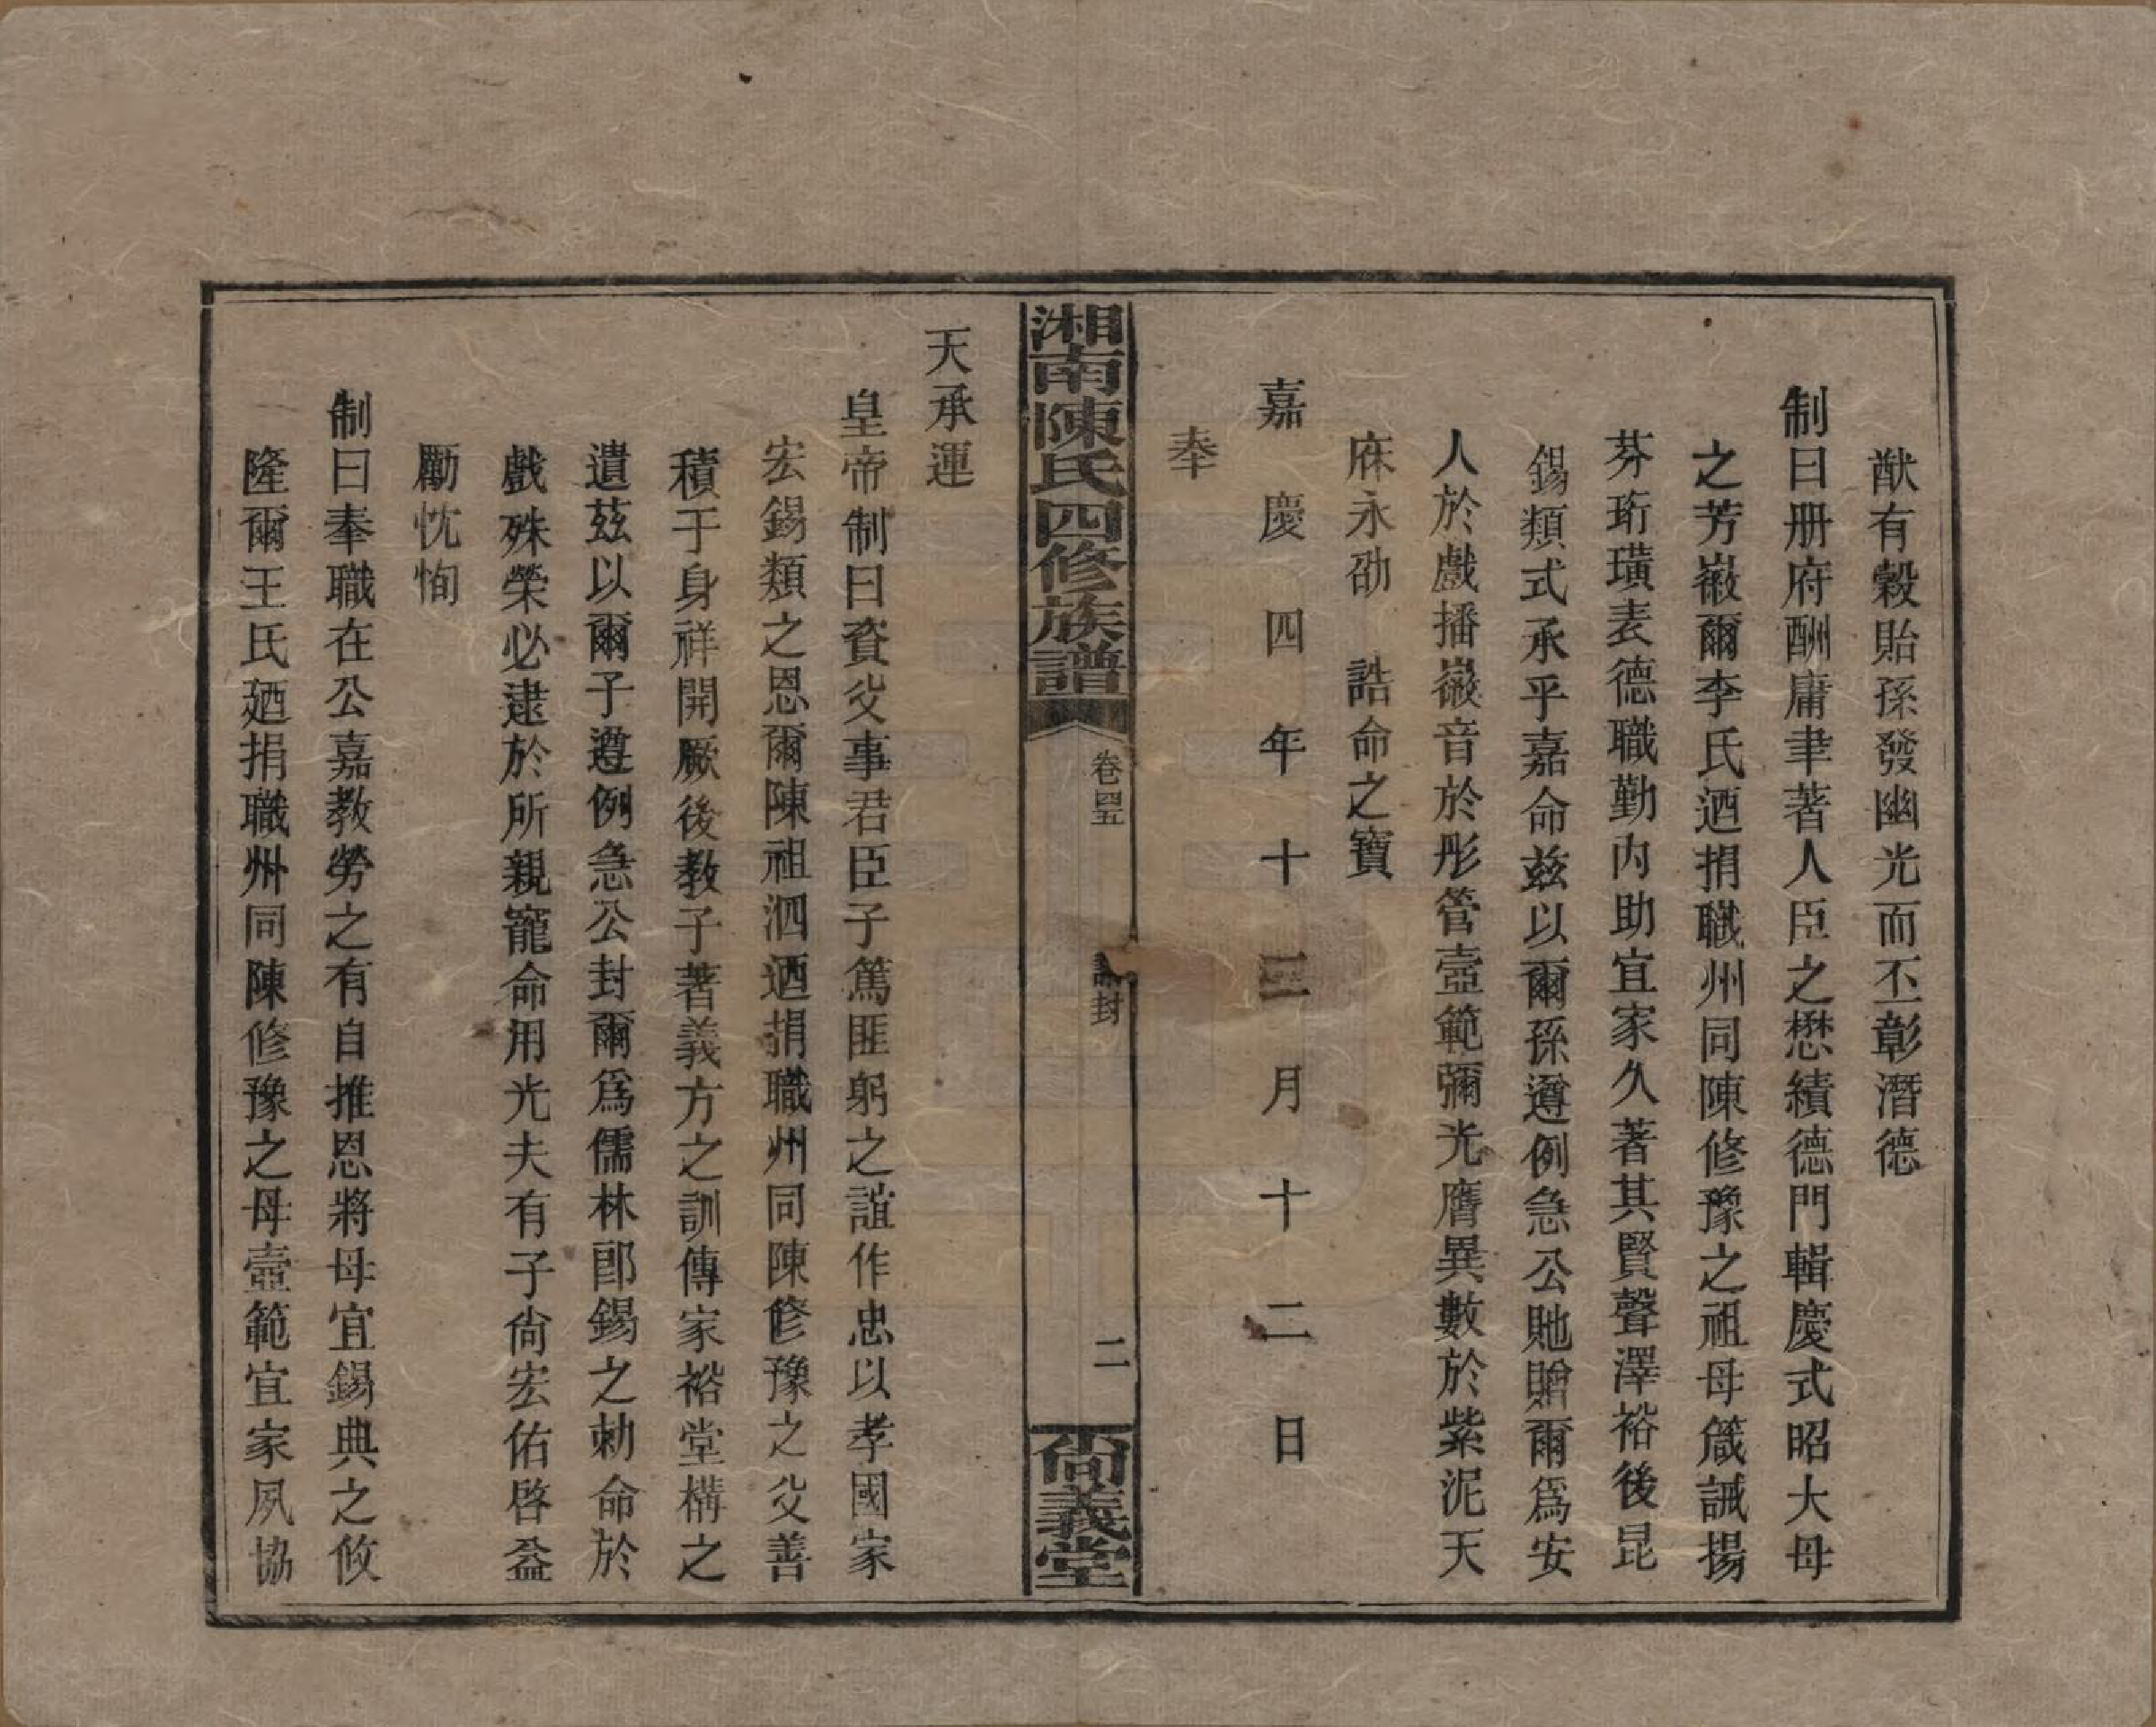 猷有穀貽孫發幽光而丕彰潛德
制曰册府酬庸聿著人臣之懋績德門輯慶式昭大母
之芳徽爾李氏迺捐職州同陳修豫之祖母箴誡揚
芬珩璜表德職勤內助宜家久著其賢聲澤裕後昆
錫類式承乎嘉命兹以爾孫遵例急公貤贈爾爲安
人於戲播徽音於彤管壼範彌光膺異數於紫泥天
庥永劭　誥命之寶
嘉慶四年十二月十二日
奉
湘南陳氏四修族譜
卷四五
誥封
二
尙義堂
天承運
皇帝制曰資父事君臣子篤匪躬之誼作忠以孝國家
宏錫類之恩爾陳祖泗迺捐職州同陳修豫之父善
積于身祥開厥後教子著義方之訓傳家裕堂構之
遺茲以爾子遵例急公封爾爲儒林郎錫之勅命於
戲殊榮必逮於所親寵命用光夫有子尙宏佑啓益
勵忱恂
制曰奉職在公嘉教勞之有自推恩將母宜錫典之攸
隆爾王氏廼捐職州同陳修豫之母壼範宜家夙協